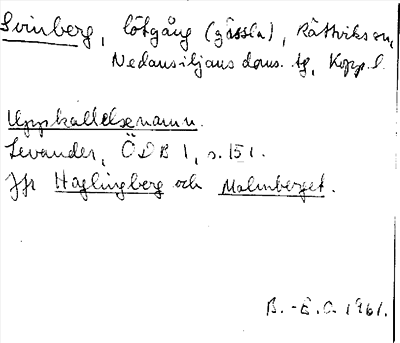 Svinberg, lötgång (gässla), Rättviks sn,
Nedansiljans doms. tg, Kopp. l.
Uppkallelsenamn.
Levander, ÖDB 1, s. 151.
Jfr Haglingberg och Malmberget.
B.-E.O. 1961.